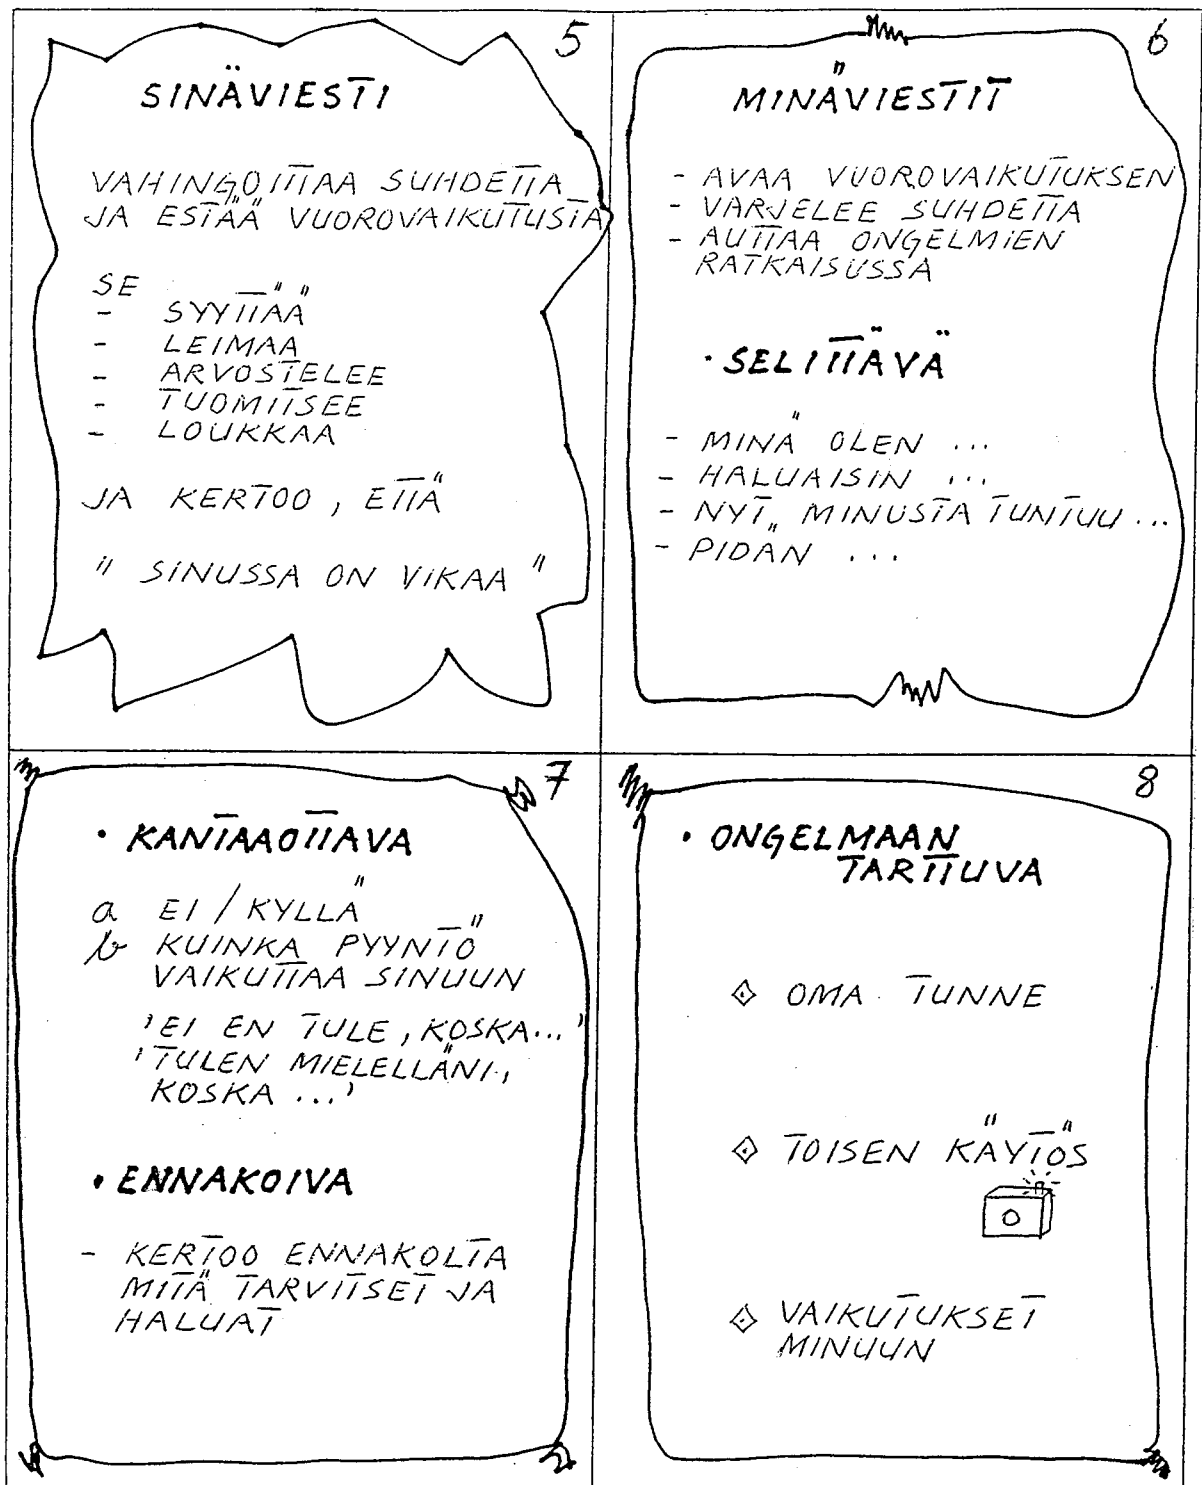 5
SINÄVIESTI
VAHINGOITTAA SUHDETTA
JA ESTÄÄ VUOROVAIKUTUSTA
SE
- SYYTTÄÄ
- LEIMAA
- ARVOSTELEE
- TUOMITSEE
- LOUKKAA
JA KERTOO, ETTÄ
" SINUSSA ON VIKAA "
6
MINÄVIESTIT
- AVAA VUOROVAIKUTUKSEN
- VARJELEE SUHDETTA
- AUTTAA ONGELMIEN
RATKAISUSSA
• SELITTÄVÄ
- MINÄ OLEN ...
- HALUAISIN ...
- NYT MINUSTA TUNTUU ...
- PIDÄN ...
7
• KANTAAOTTAVA
a EI / KYLLÄ
b KUINKA PYYNTÖ
VAIKUTTAA SINUUN
'EI EN TULE, KOSKA...'
'TULEN MIELELLÄNI,
KOSKA ...'
• ENNAKOIVA
- KERTOO ENNAKOLTA
MITÄ TARVITSET JA
HALUAT
8
• ONGELMAAN
TARTTUVA
OMA TUNNE
TOISEN KÄYTÖS
VAIKUTUKSET
MINUUN